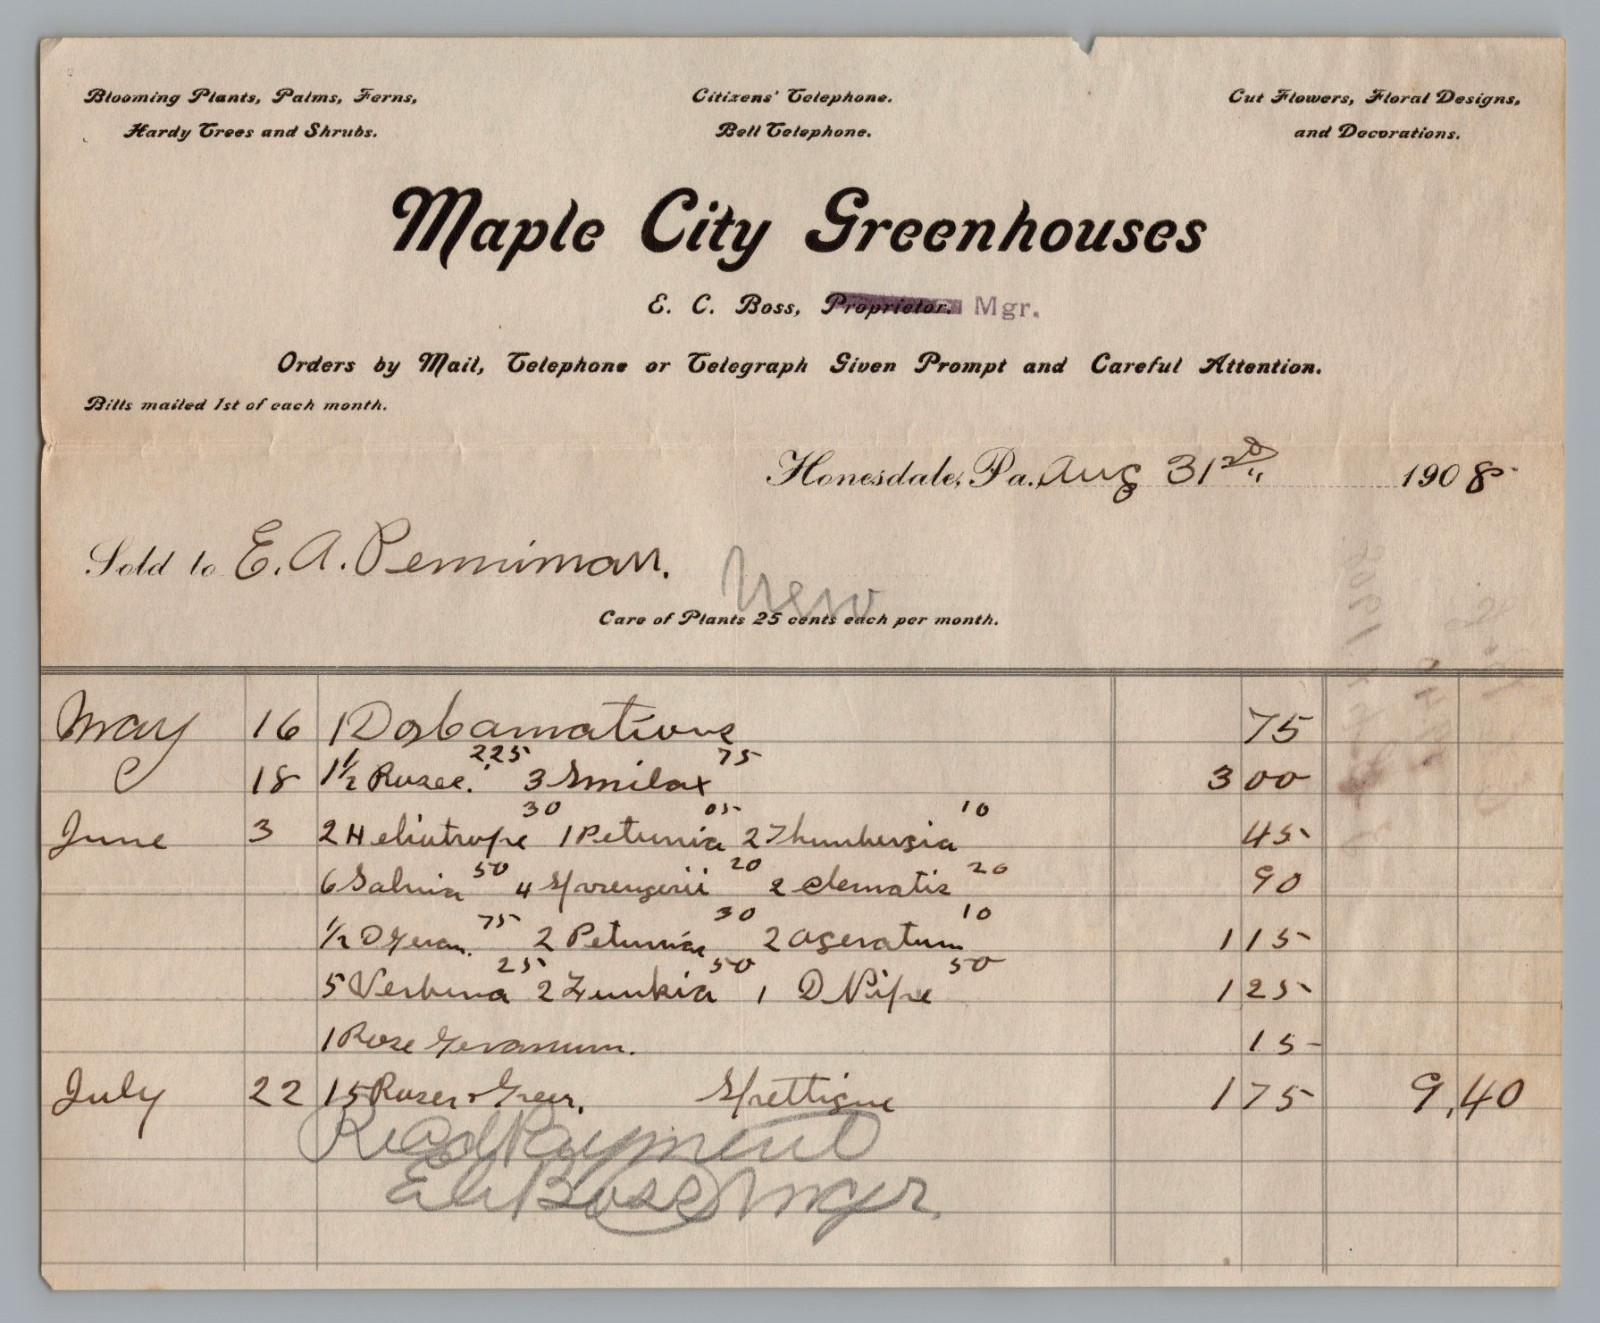 Blooming Plants, Palms, Ferns,
Hardy Trees and Shrubs.
Citizens' Telephone.
Bell Telephone.
Cut Flowers, Floral Designs,
and Decorations.
Maple City Greenhouses
E. C. Boss, Proprietor. Mgr.
Orders by Mail, Telephone or Telegraph Given Prompt and Careful Attention.
Bills mailed 1st of each month.
Honesdale, Pa., Aug 31 1908
Sold to E. A. Penniman.
New
Care of Plants 25 cents each per month.
May 16 1 Doz Carnations 75
18 1 1/2 Roses. 225 3 Smilax 75 3 00
June 3 2 Heliotrope 30 1 Petunia 05 2 Thunbergia 10 45
6 Salvia 50 4 Sprengerii 20 2 Clematis 20 90
1/2 D Geran. 75 2 Petunias 30 2 Ageratum 10 1 15
5 Verbena 25 2 Funkia 50 1 D Pipe 50 1 25
1 Rose Geranium. 15
July 22 15 Roses + Green. 1 75 9.40
Recd Payment
E C Boss Mgr.